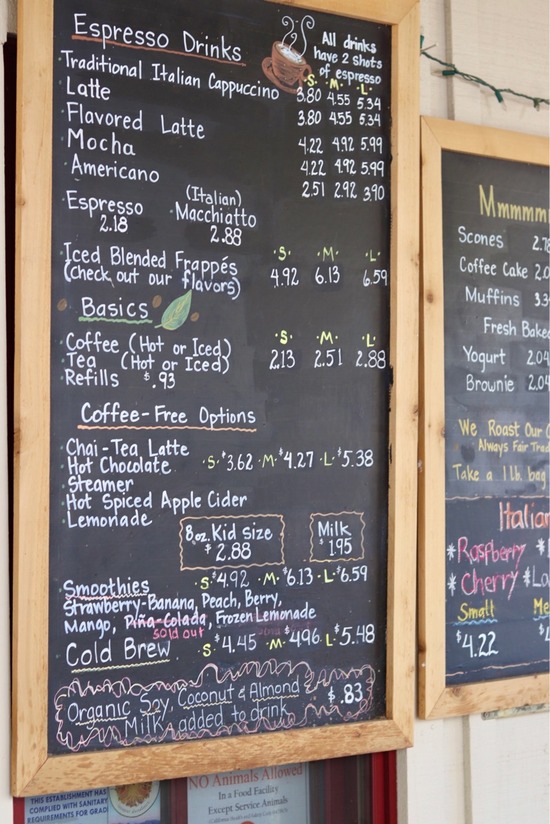 Espresso Drinks
All drinks
have 2 shots
of espresso
S. M. L.
Traditional Italian Cappuccino 3.80 4.55 5.34
Latte 3.80 4.55 5.34
Flavored Latte 4.22 4.92 5.99
Mocha 4.22 4.92 5.99
Americano 2.51 2.92 3.90
Espresso (Italian) Macchiatto
2.18 2.88
·S· ·M· ·L·
Iced Blended Frappés 4.92 6.13 6.59
(check out our flavors)
Basics
·S· ·M· ·L·
Coffee (Hot or Iced) 2.13 2.51 2.88
Tea (Hot or Iced)
Refills $.93
Coffee-Free Options
Chai-Tea Latte
Hot Chocolate ·S·$3.62 ·M·$4.27 ·L·$5.38
Steamer
Hot Spiced Apple Cider
Lemonade
8oz. Kid Size
$2.88
Milk
1.95
Smoothies ·S·$4.92 ·M·$6.13 ·L·$6.59
Strawberry-Banana, Peach, Berry,
Mango, Piña-Colada, Frozen Lemonade
sold out
Cold Brew ·S·$4.45 ·M·$4.96 L·$5.48
Organic Soy, Coconut & Almond
Milk added to drink $.83
Mmmmm
Scones 2.7
Coffee Cake 2.0
Muffins 3.3
Fresh Baked
Yogurt 2.04
Brownie 2.04
We Roast Our
Always Fair Trad
Take a 1 lb. bag
Italian
*Raspberry *
*Cherry *
Small Me
$4.22
THIS ESTABLISHMENT HAS
COMPLIED WITH SANITARY
REQUIREMENTS FOR GRADE
NO Animals Allowed
In a Food Facility
Except Service Animals